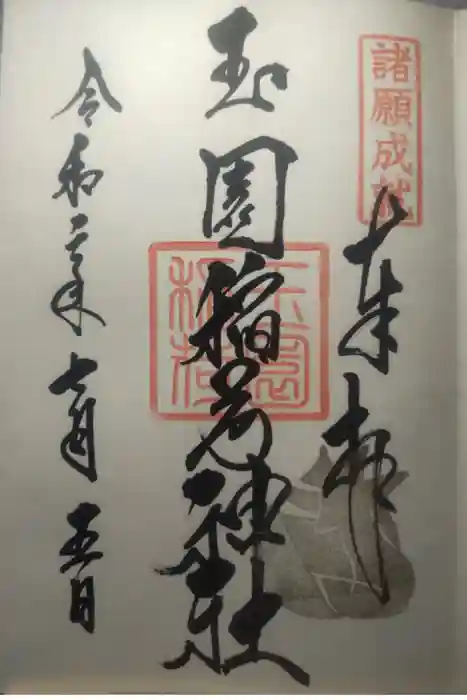 諸願成就
奉拝
玉園稲荷神社
玉園稲荷
令和二年七月五日